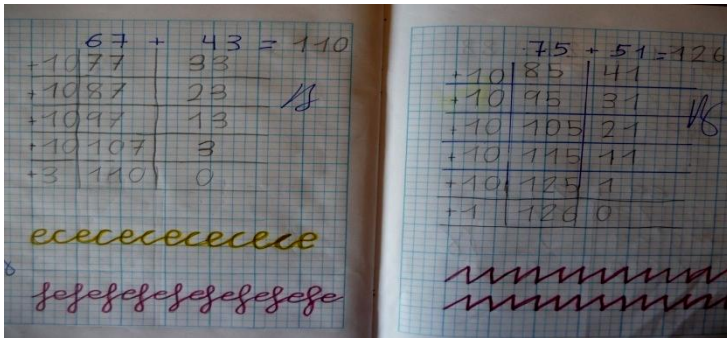 67 + 43 = 110
+10 77 33
+10 87 23
+10 97 13
+10 107 3
+3 110 0
ececececececece
fefefefefefefefefe
75 + 51 = 126
+10 85 41
+10 95 31
+10 105 21
+10 115 11
+10 125 1
+1 126 0